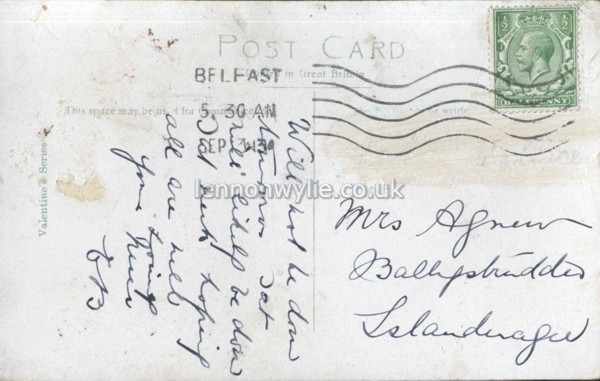 POST CARD
in Great Britain
BELFAST
5. 30 AM
SEP 3 13
This space may be used for Communication
HALFPENNY
Valentine's Series
lennonwylie.co.uk
Will not be down
tomorrow Sat
will likely be down
Sat next hoping
all are well
Your loving
niece
E B
Mrs Agnew
Ballystrudder
Islandmagee